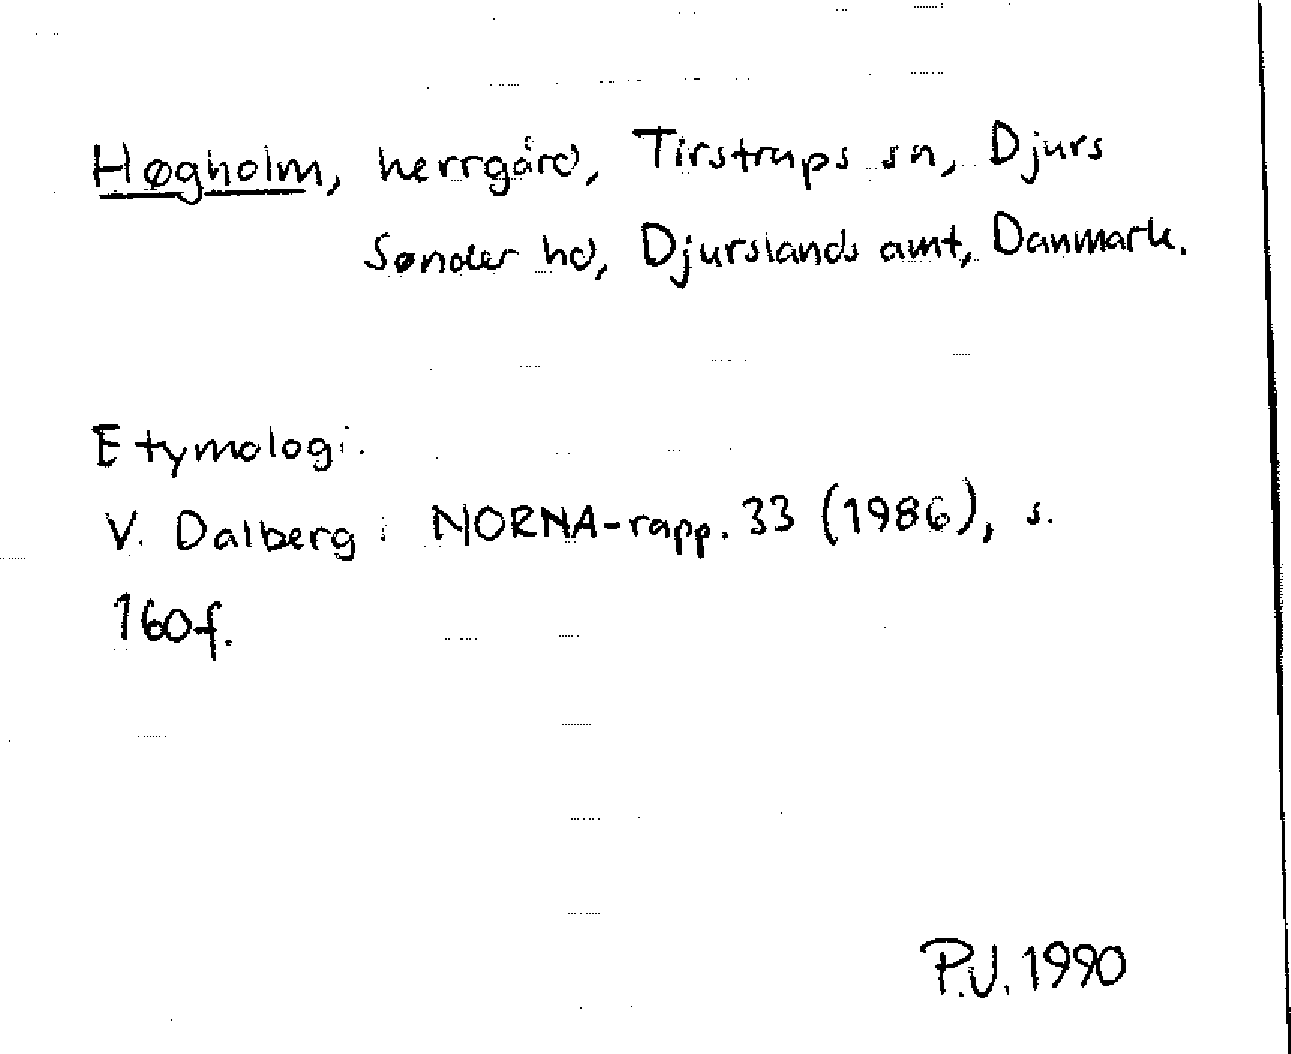 Høgholm, herrgård, Tirstrups sn, Djurs
Sønder hd, Djurslands amt, Danmark.
Etymologi.
V. Dalberg i NORNA-rapp. 33 (1986), s.
160f.
P.V. 1990